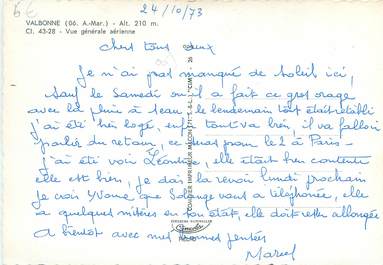 5€
24/10/73
VALBONNE (06. A.-Mar.) - Alt. 210 m.
Cl. 43-28 - Vue générale aérienne
Chers tous deux
Je n'ai pas manqué de soleil ici,
sauf le Samedi ou il a fait ce gros orage
avec la pluie à seau, le lendemain tout était rétabli
j'ai été bien logé, tout va bien, il va falloir
parler du retour, ce sera pour le 2 à Paris -
j'ai été voir Léontine, elle était bien contente
elle est bien, je dois la revoir lundi prochain
je crois Yvonne que Solange vous a téléphonée, elle
a quelques misères en son état, elle doit rester allongée
A bientôt avec mes bonnes pensées
Marcel
COMBIER IMPRIMEUR MACON (71) S.-&-L. "CIM"